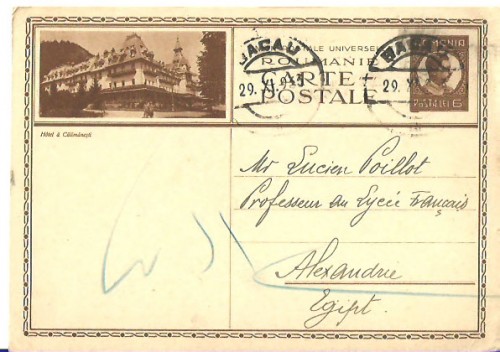 BACAU
29. XI.
UNIVERSELLE
ROUMANIE
CARTE
POSTALE
BACAU
29. XI.
ROMANIA
POSTA LEI 6
Hôtel à Călimănești
Mr Lucien Poillot
Professeur au Lycée Français
Alexandrie
Egipt.